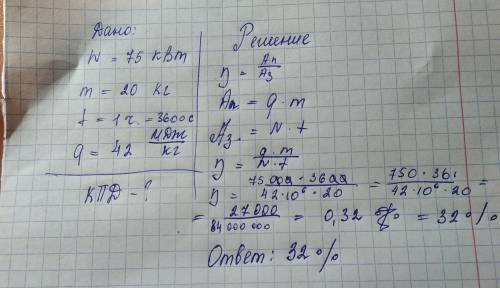 Дано:
N = 75 кВт
m = 20 кг
t = 1 ч. = 3600 с
q = 42 МДж/кг
КПД - ?
Решение
η = Ап/Аз
Ап = q · m
Аз. = N · t
η = q · m / N · t
η = 75000 · 3600 / 42 · 10⁶ · 20 = 750 · 36 / 42 · 10⁶ · 20 =
= 27000 / 84 000 000 = 0,32 = 32 %
Ответ: 32 %